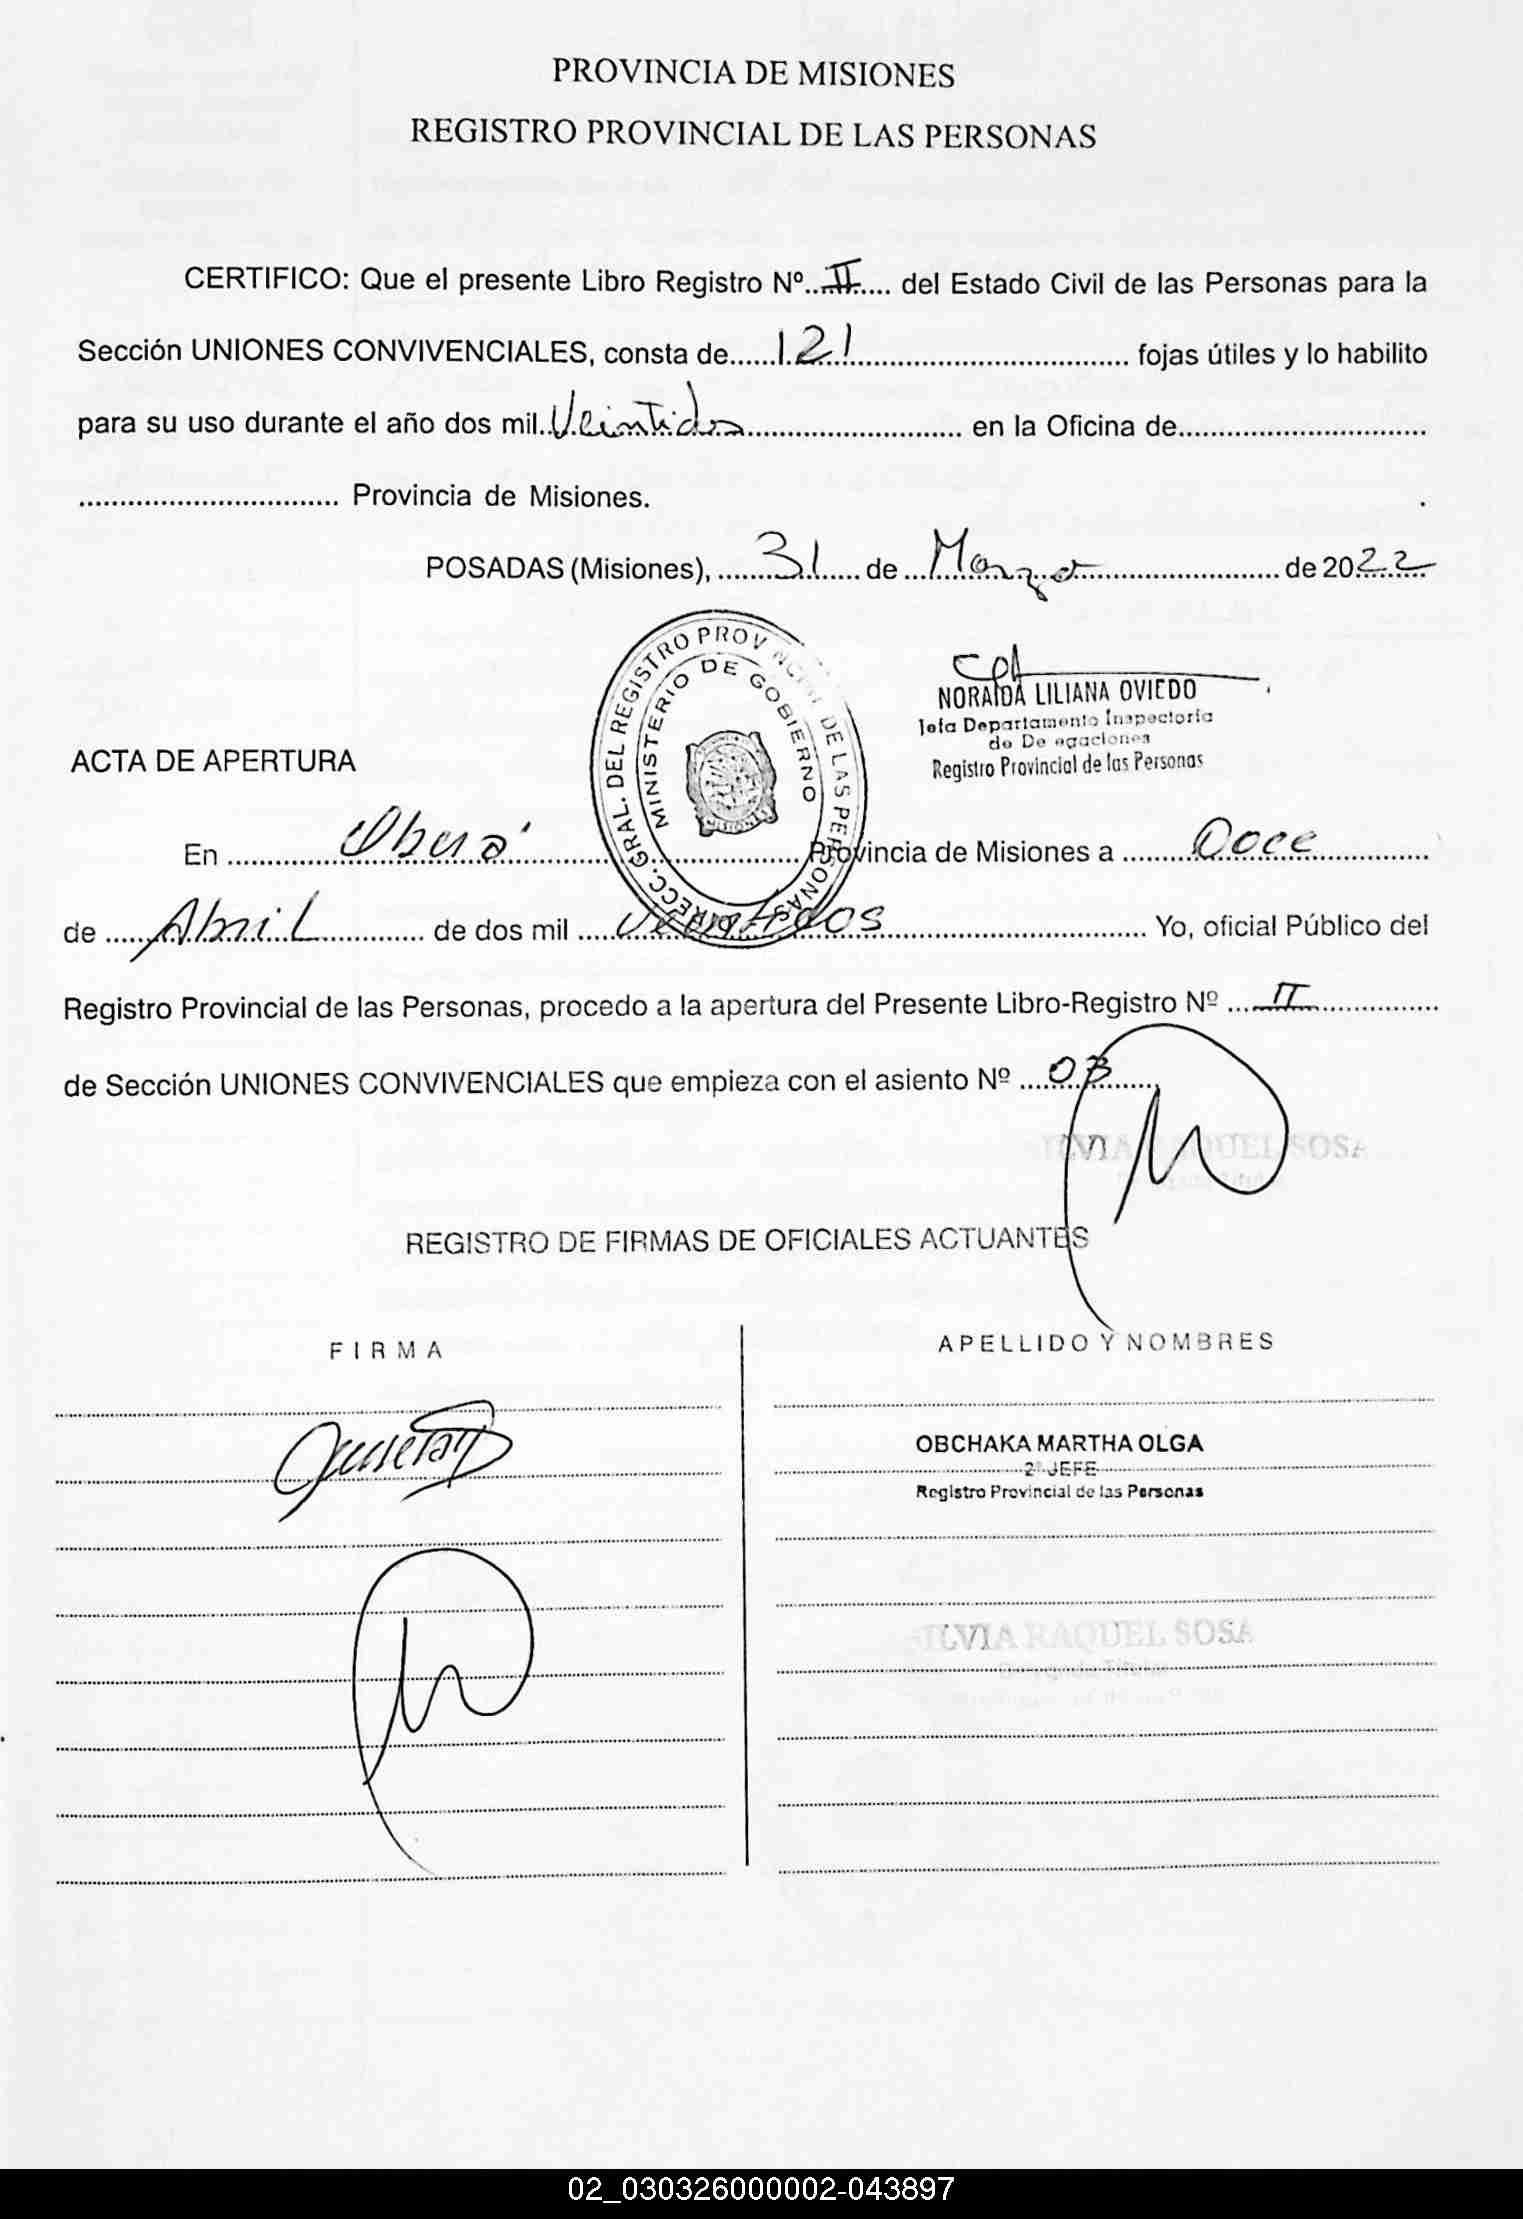 PROVINCIA DE MISIONES
REGISTRO PROVINCIAL DE LAS PERSONAS
CERTIFICO: Que el presente Libro Registro Nº..II.... del Estado Civil de las Personas para la
Sección UNIONES CONVIVENCIALES, consta de......121.................................. fojas útiles y lo habilito
para su uso durante el año dos mil..Veintidos.......................... en la Oficina de..............................
................................ Provincia de Misiones.
POSADAS (Misiones), .......31..... de ...Marzo......................... de 2022
NORAIDA LILIANA OVIEDO
Jefa Departamento Inspectoria
de De egaciones
Registro Provincial de las Personas
DIRECC. GRAL. DEL REGISTRO PROVINCIAL DE LAS PERSONAS
MINISTERIO DE GOBIERNO
MISIONES
ACTA DE APERTURA
En ..............Oberá.................................. Provincia de Misiones a .........Doce..............
de .....Abril............. de dos mil .....Veintidos................................ Yo, oficial Público del
Registro Provincial de las Personas, procedo a la apertura del Presente Libro-Registro Nº ...II...............
de Sección UNIONES CONVIVENCIALES que empieza con el asiento Nº ....03.......
SILVIA RAQUEL SOSA
REGISTRO DE FIRMAS DE OFICIALES ACTUANTES
FIRMA
APELLIDO Y NOMBRES
OBCHAKA MARTHA OLGA
2º JEFE
Registro Provincial de las Personas
SILVIA RAQUEL SOSA
Delegada Titular
02_030326000002-043897